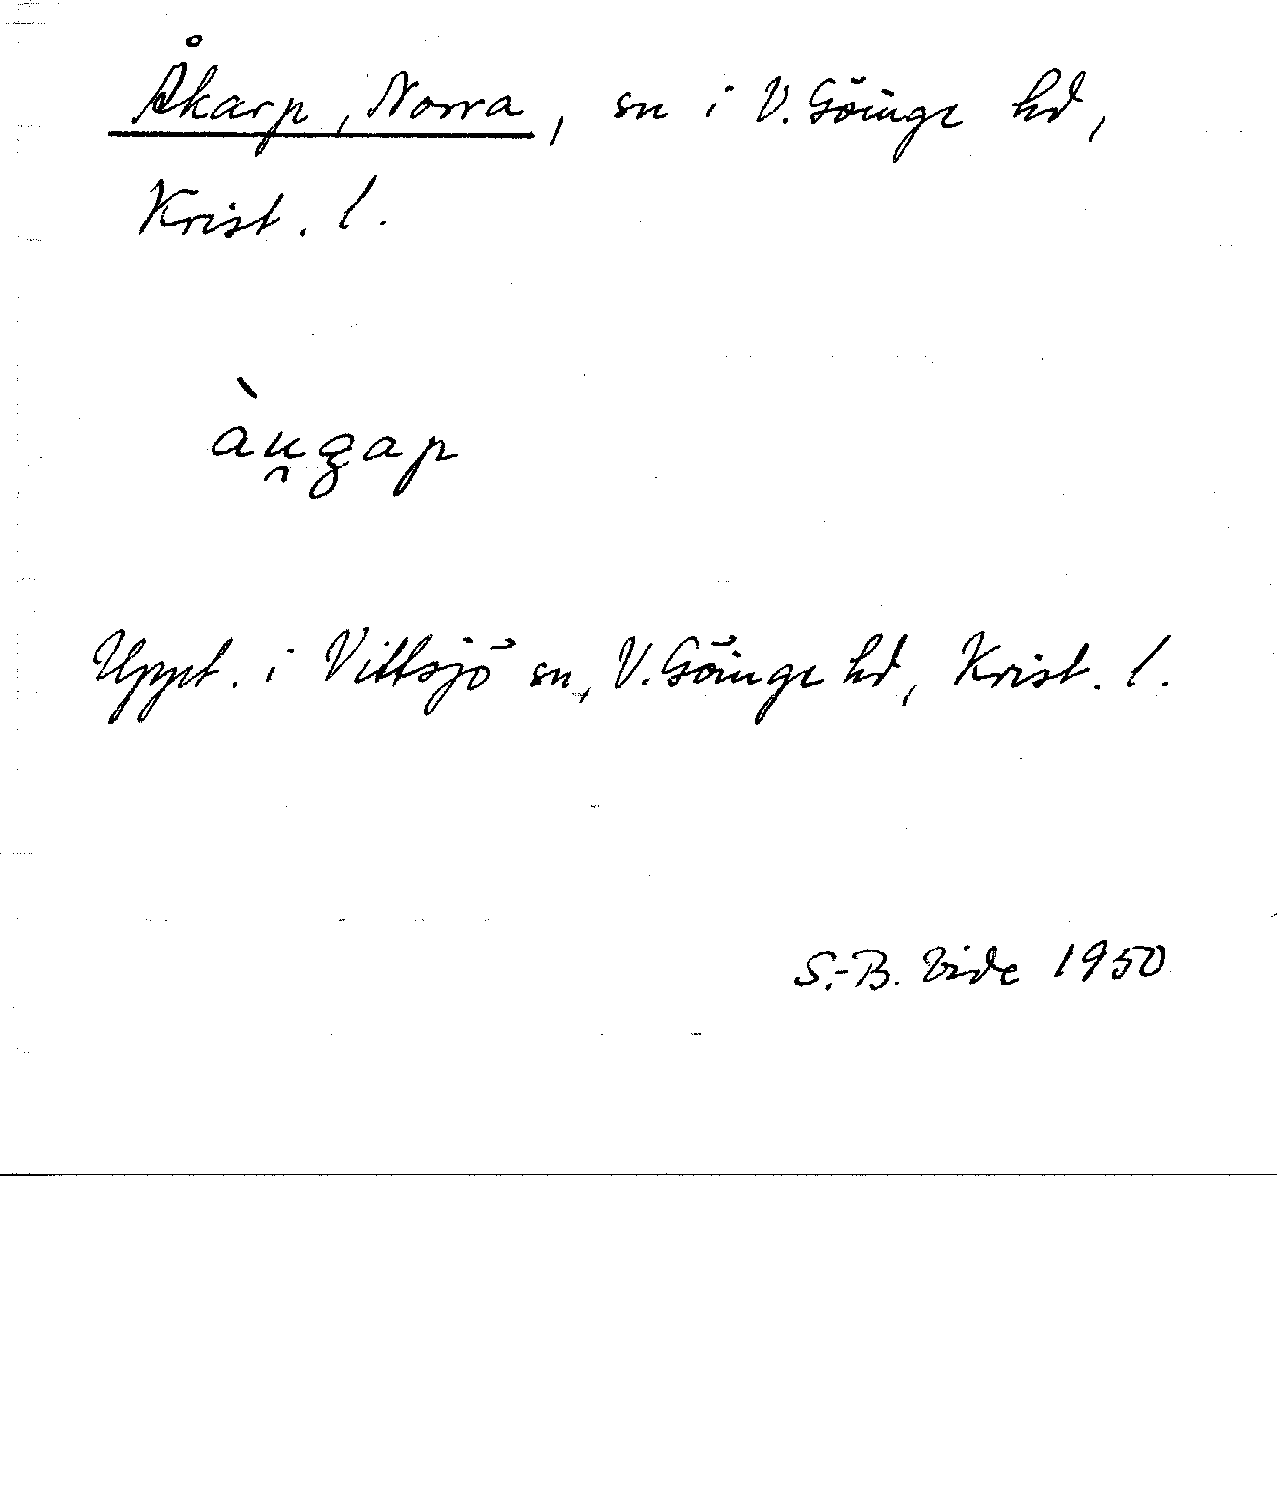 Åkarp, Norra, sn i V. Göinge hd,
Krist. l.
àu̯gap
Uppt. i Vittsjö sn, V. Göinge hd, Krist. l.
S.-B. Vide 1950